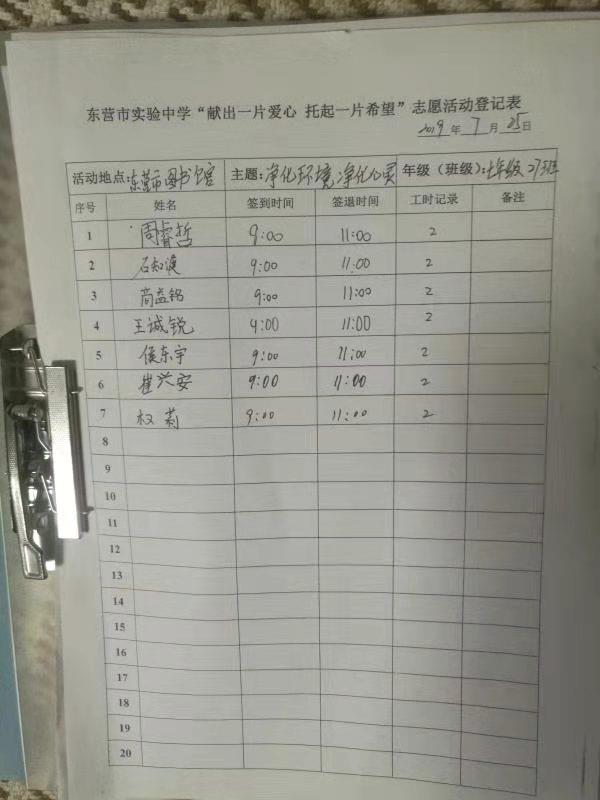 东营市实验中学“献出一片爱心 托起一片希望”志愿活动登记表
2019年 7月 25日
活动地点:东营市图书馆 主题:净化环境,净化心灵 年级（班级）:七年级27班
序号 姓名 签到时间 签退时间 工时记录 备注
1 周睿哲 9:00 11:00 2
2 9:00 11:00 2
3 9:00 11:00 2
4 王诚锐 9:00 11:00 2
5 侯东宇 9:00 11:00 2
6 崔兴安 9:00 11:00 2
7 权莉 9:00 11:00 2
8
9
10
11
12
13
14
15
16
17
18
19
20